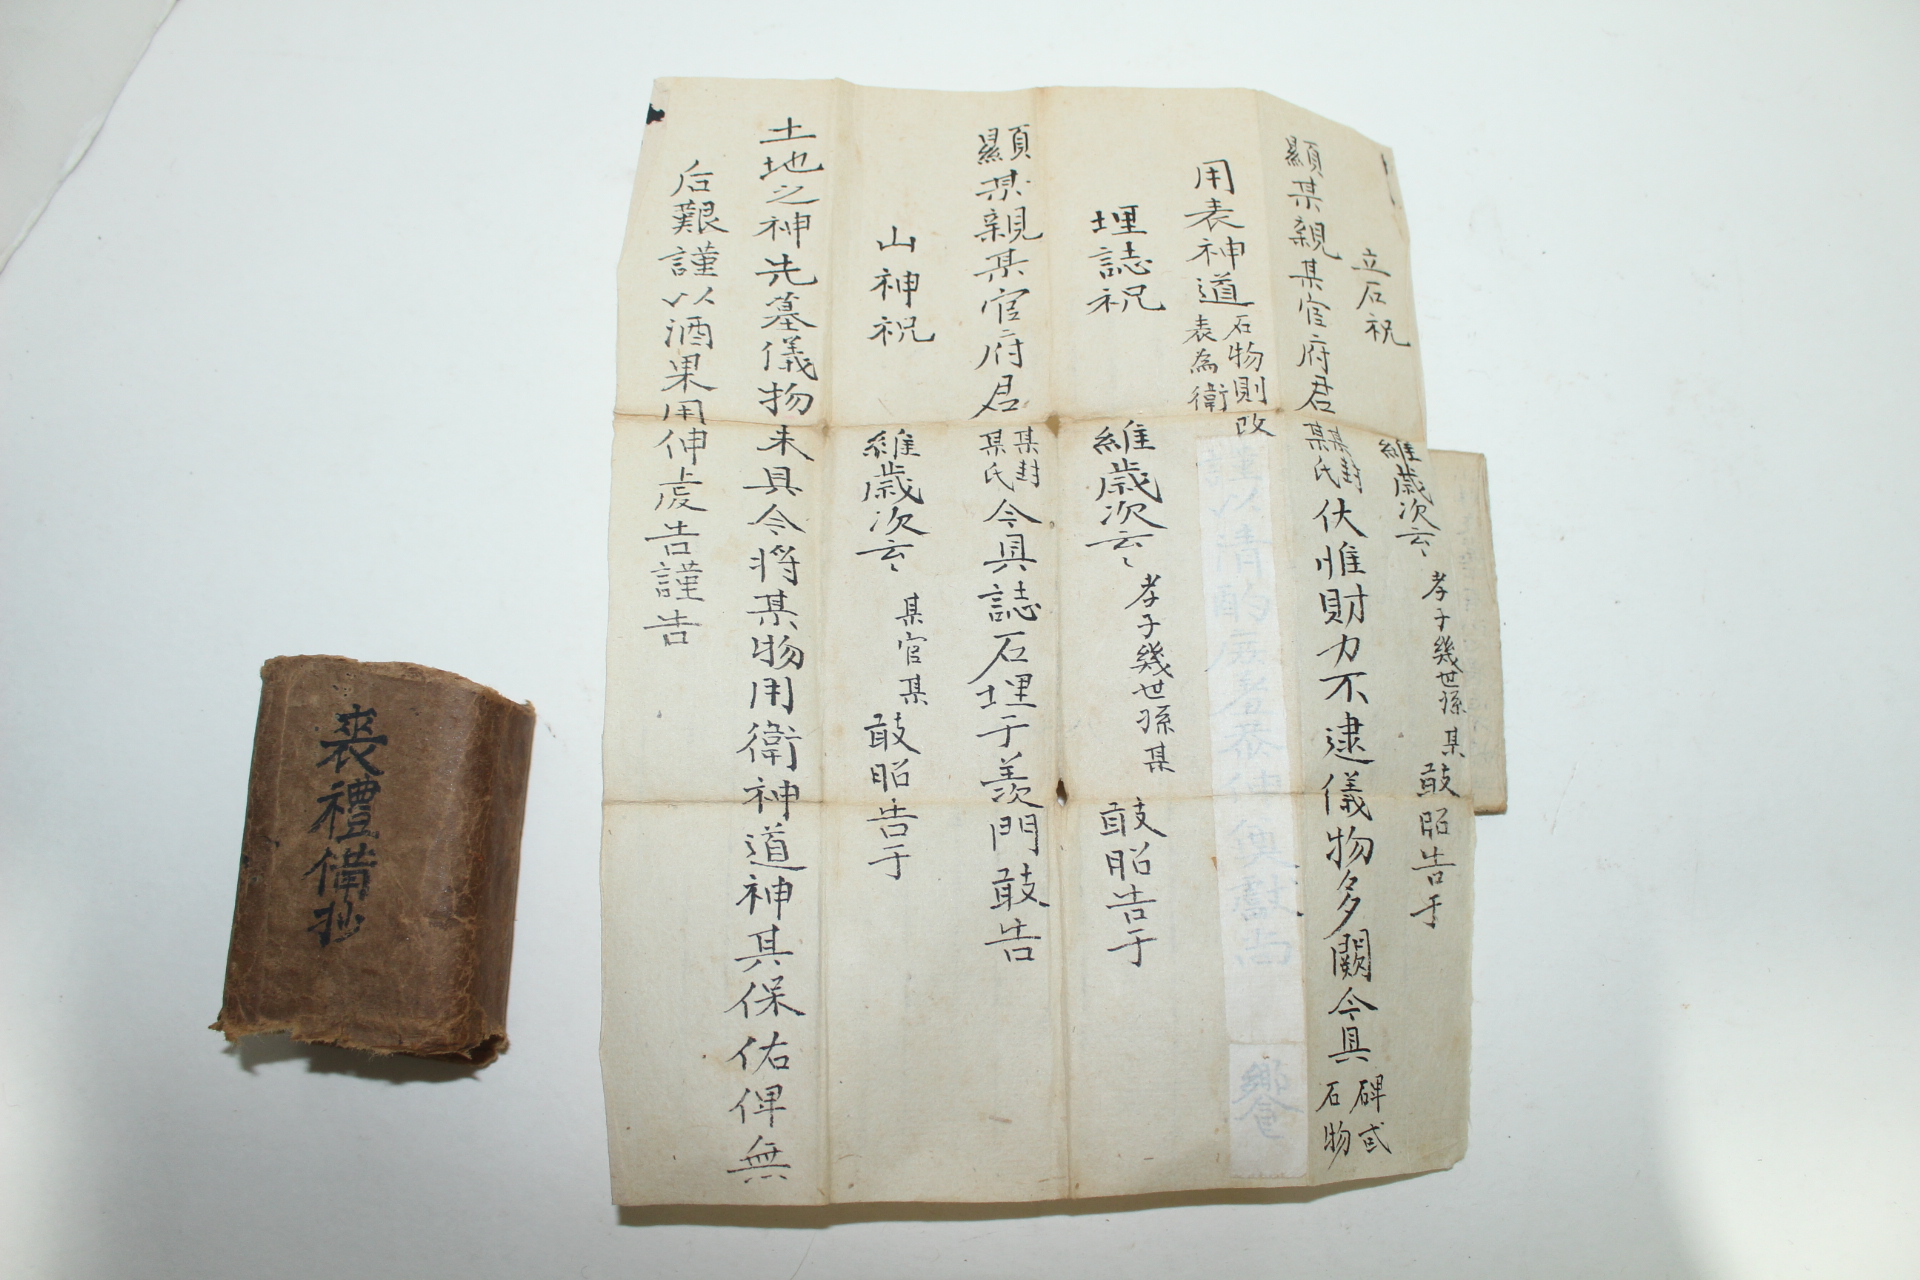 立石祝
維歲次云〻 孝子幾世孫某 敢昭告于
顯某親某官府君某封某氏伏惟財力不逮儀物多闕今具碑或石物
用表神道石物則改表為衛
謹以清酌庶羞恭伸奠獻尚
饗
埋誌祝
維歲次云〻 孝子幾世孫某 敢昭告于
顯某親某官府君某封某氏今具誌石埋于羨門敢告
山神祝
維歲次云〻 某官某 敢昭告于
土地之神先墓儀物未具今將某物用衛神道神其保佑俾無
后艱謹以酒果用伸虔告謹告
喪禮備抄